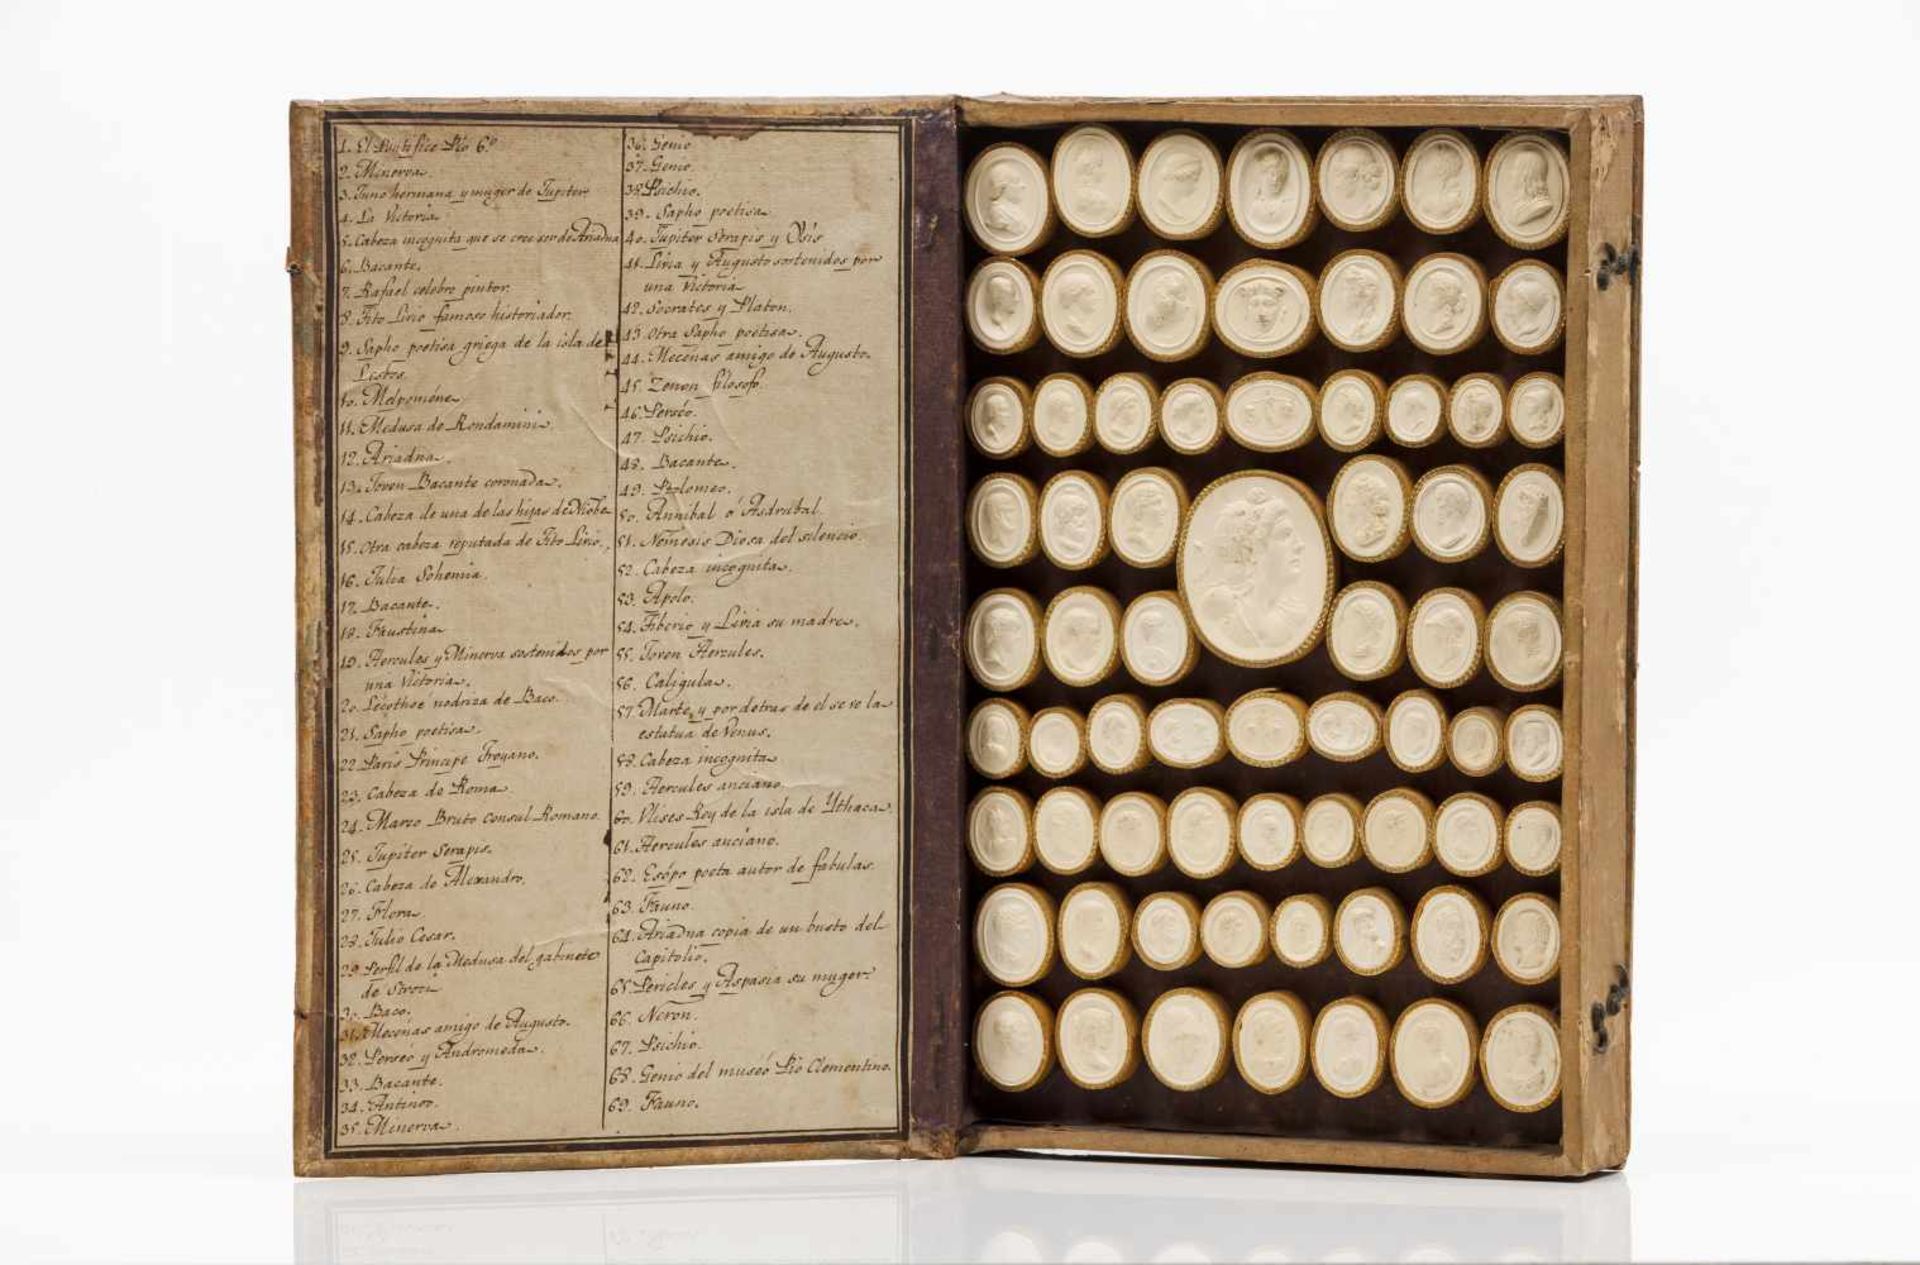 1. El Pontifice Pio 6.º
2. Minerva.
3. Juno hermana y muger de Jupiter
4. La Victoria
5. Cabeza incognita que se cree ser de Ariadna
6. Bacante.
7. Rafael celebre pintor.
8. Tito Livio famoso historiador.
9. Sapho poetisa griega de la isla de
Lesbos.
10. Melpoméne
11. Medusa de Rondanini.
12. Ariadna.
13. Joven Bacante coronada.
14. Cabeza de una de las hijas de Niobe
15. Otra cabeza reputada de Tito Livio.
16. Julia Sohemia.
17. Bacante.
18. Faustina
19. Hercules y Minerva sostenidos por
una Victoria.
20. Lecothoe nodriza de Baco.
21. Sapho poetisa.
22. Paris Principe Troyano.
23. Cabeza de Roma
24. Marco Bruto consul Romano.
25. Jupiter Serapis.
26. Cabeza de Alexandro.
27. Flora
28. Julio Cesar.
29. Perfil de la Medusa del gabinete
de Strozi
30. Baco.
31. Mecenas amigo de Augusto.
32. Perseo y Andromeda.
33. Bacante.
34. Antinoo.
35. Minerva.
36. Genio
37. Genio.
38. Psichis.
39. Sapho poetisa
40. Jupiter Serapis y Ysis
41. Livia y Augusto sostenidos por
una Victoria
42. Socrates y Platon.
43. Otra Sapho poetisa.
44. Mecenas amigo de Augusto.
45. Zenon filosofo.
46. Perséo.
47. Psichis.
48. Bacante.
49. Ptolomeo.
50. Annibal ó Asdrubal.
51. Nemesis Diosa del silencio.
52. Cabeza incognita.
53. Apolo.
54. Tiberio y Livia su madre.
55. Joven Hercules.
56. Caligula.
57. Marte, y por detras de el se ve la
estatua de Venus.
58. Cabeza incognita
59. Hercules anciano.
60. Vlises Rey de la isla de Ythaca.
61. Hercules anciano.
62. Esópo poeta autor de fabulas.
63. Fauno.
64. Ariadna copia de un busto del
Capitolio.
65. Pericles y Aspasia su muger
66. Neron.
67. Psichis.
68. Genio del museó Pio Clementino.
69. Fauno.